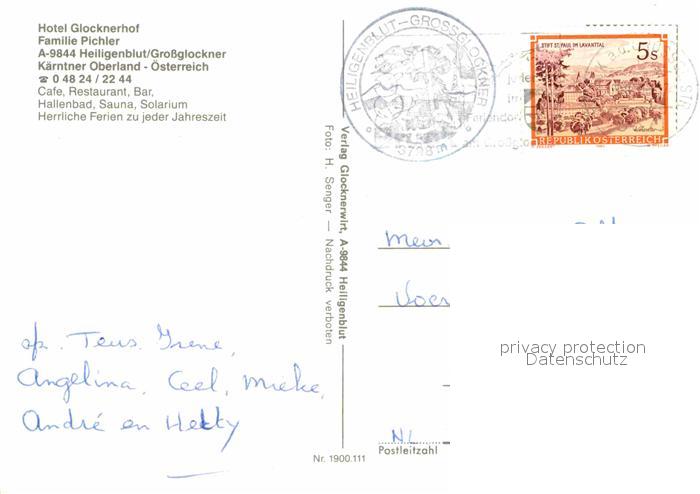 Hotel Glocknerhof
Familie Pichler
A-9844 Heiligenblut/Großglockner
Kärntner Oberland - Österreich
☎ 0 48 24 / 22 44
Cafe, Restaurant, Bar,
Hallenbad, Sauna, Solarium
Herrliche Ferien zu jeder Jahreszeit
HEILIGENBLUT-GROSSGLOCKNER
3798 m
STIFT ST. PAUL IM LAVANTTAL
5 S
REPUBLIK ÖSTERREICH
Verlag Glocknerwirt, A-9844 Heiligenblut
Foto: H. Senger — Nachdruck verboten
privacy protection
Datenschutz
Teus. Irene,
Angelina, Ceel, Mieke,
André en Hetty
NL
Postleitzahl
Nr. 1900.111